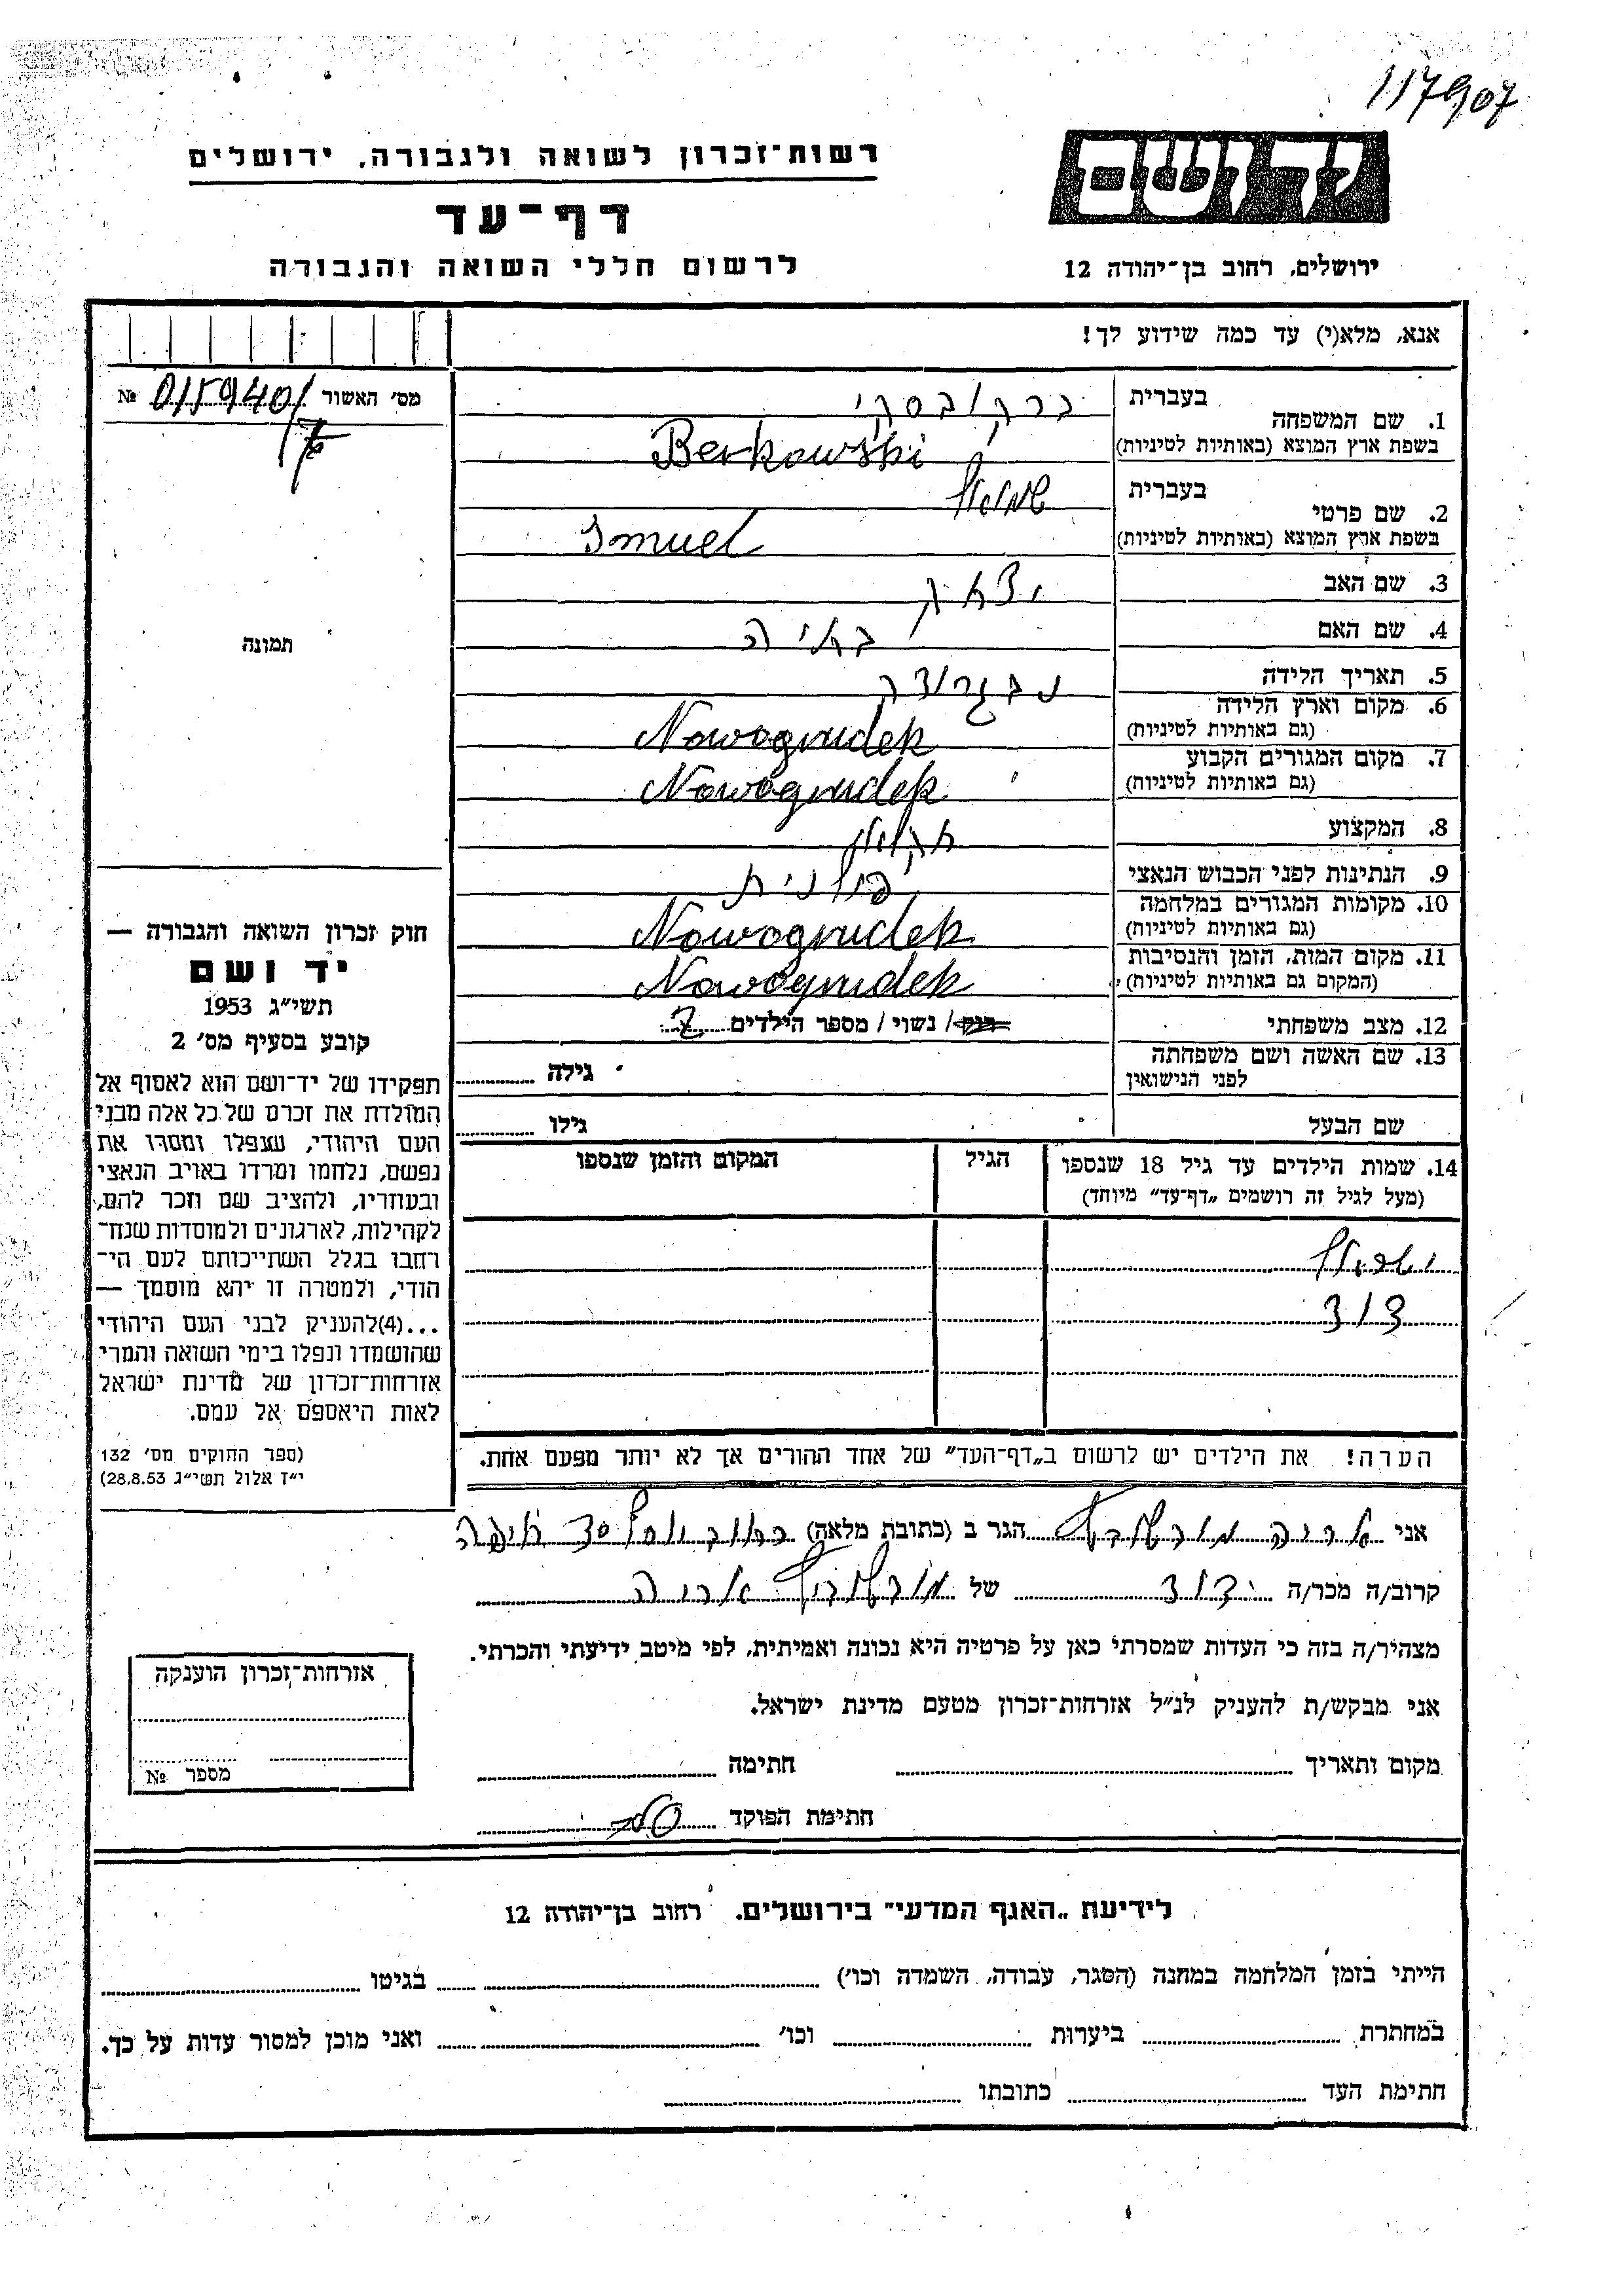 117907
רשות־זכרון לשואה ולגבורה, ירושלים
דף־עד
לרשום חללי השואה והגבורה
יד ושם
ירושלים, רחוב בן־יהודה 12
אנא, מלא(י) עד כמה שידוע לך!
מס׳ האשור № 0159401
17
תמונה
1. שם המשפחה בעברית ברקובסקי
בשפת ארץ המוצא (באותיות לטיניות) Berkowski
2. שם פרטי בעברית שמואל
בשפת ארץ המוצא (באותיות לטיניות) Smuel
3. שם האב יצחק
4. שם האם
5. תאריך הלידה
6. מקום וארץ הלידה
(גם באותיות לטיניות) Nowogrudek
7. מקום המגורים הקבוע
(גם באותיות לטיניות) Nowogrudek
8. המקצוע
9. הנתינות לפני הכבוש הנאצי פולנית
10. מקומות המגורים במלחמה
(גם באותיות לטיניות) Nowogrudek
11. מקום המות, הזמן והנסיבות
(המקום גם באותיות לטיניות) Nowogrudek
12. מצב משפחתי רווק / נשוי / מספר הילדים
13. שם האשה ושם משפחתה
לפני הנישואין גילה
שם הבעל גילו
14. שמות הילדים עד גיל 18 שנספו הגיל המקום והזמן שנספו
(מעל לגיל זה רושמים „דף־עד״ מיוחד)
דוד
הערה! את הילדים יש לרשום ב„דף־העד״ של אחד ההורים אך לא יותר מפעם אחת.
חוק זכרון השואה והגבורה —
יד ושם
תשי״ג 1953
קובע בסעיף מס׳ 2
תפקידו של יד־ושם הוא לאסוף אל
המולדת את זכרם של כל אלה מבני
העם היהודי, שנפלו ומסרו את
נפשם, נלחמו ומרדו באויב הנאצי
ובעוזריו, ולהציב שם וזכר להם,
לקהילות, לארגונים ולמוסדות שנח־
רחבו בגלל השתייכותם לעם הי־
הודי, ולמטרה זו יהא מוסמך —
...(4)להעניק לבני העם היהודי
שהושמדו ונפלו בימי השואה והמרי
אזרחות־זכרון של מדינת ישראל
לאות היאספם אל עמם.
(ספר החוקים מס׳ 132
י״ז אלול תשי״ג 28.8.53)
אני אריה הגר ב (כתובת מלאה) חיפה
קרוב/ה מכר/ה של אריה
מצהיר/ה בזה כי העדות שמסרתי כאן על פרטיה היא נכונה ואמיתית, לפי מיטב ידיעתי והכרתי.
אני מבקש/ת להעניק לנ״ל אזרחות־זכרון מטעם מדינת ישראל.
מקום ותאריך חתימה
חתימת הפוקד
אזרחות־זכרון הוענקה
מספר №
לידיעת „האגף המדעי״ בירושלים. רחוב בן־יהודה 12
הייתי בזמן המלחמה במחנה (הסגר, עבודה, השמדה וכו׳) בגיטו
במחתרת ביערות וכו׳ ואני מוכן למסור עדות על כך.
חתימת העד כתובתו